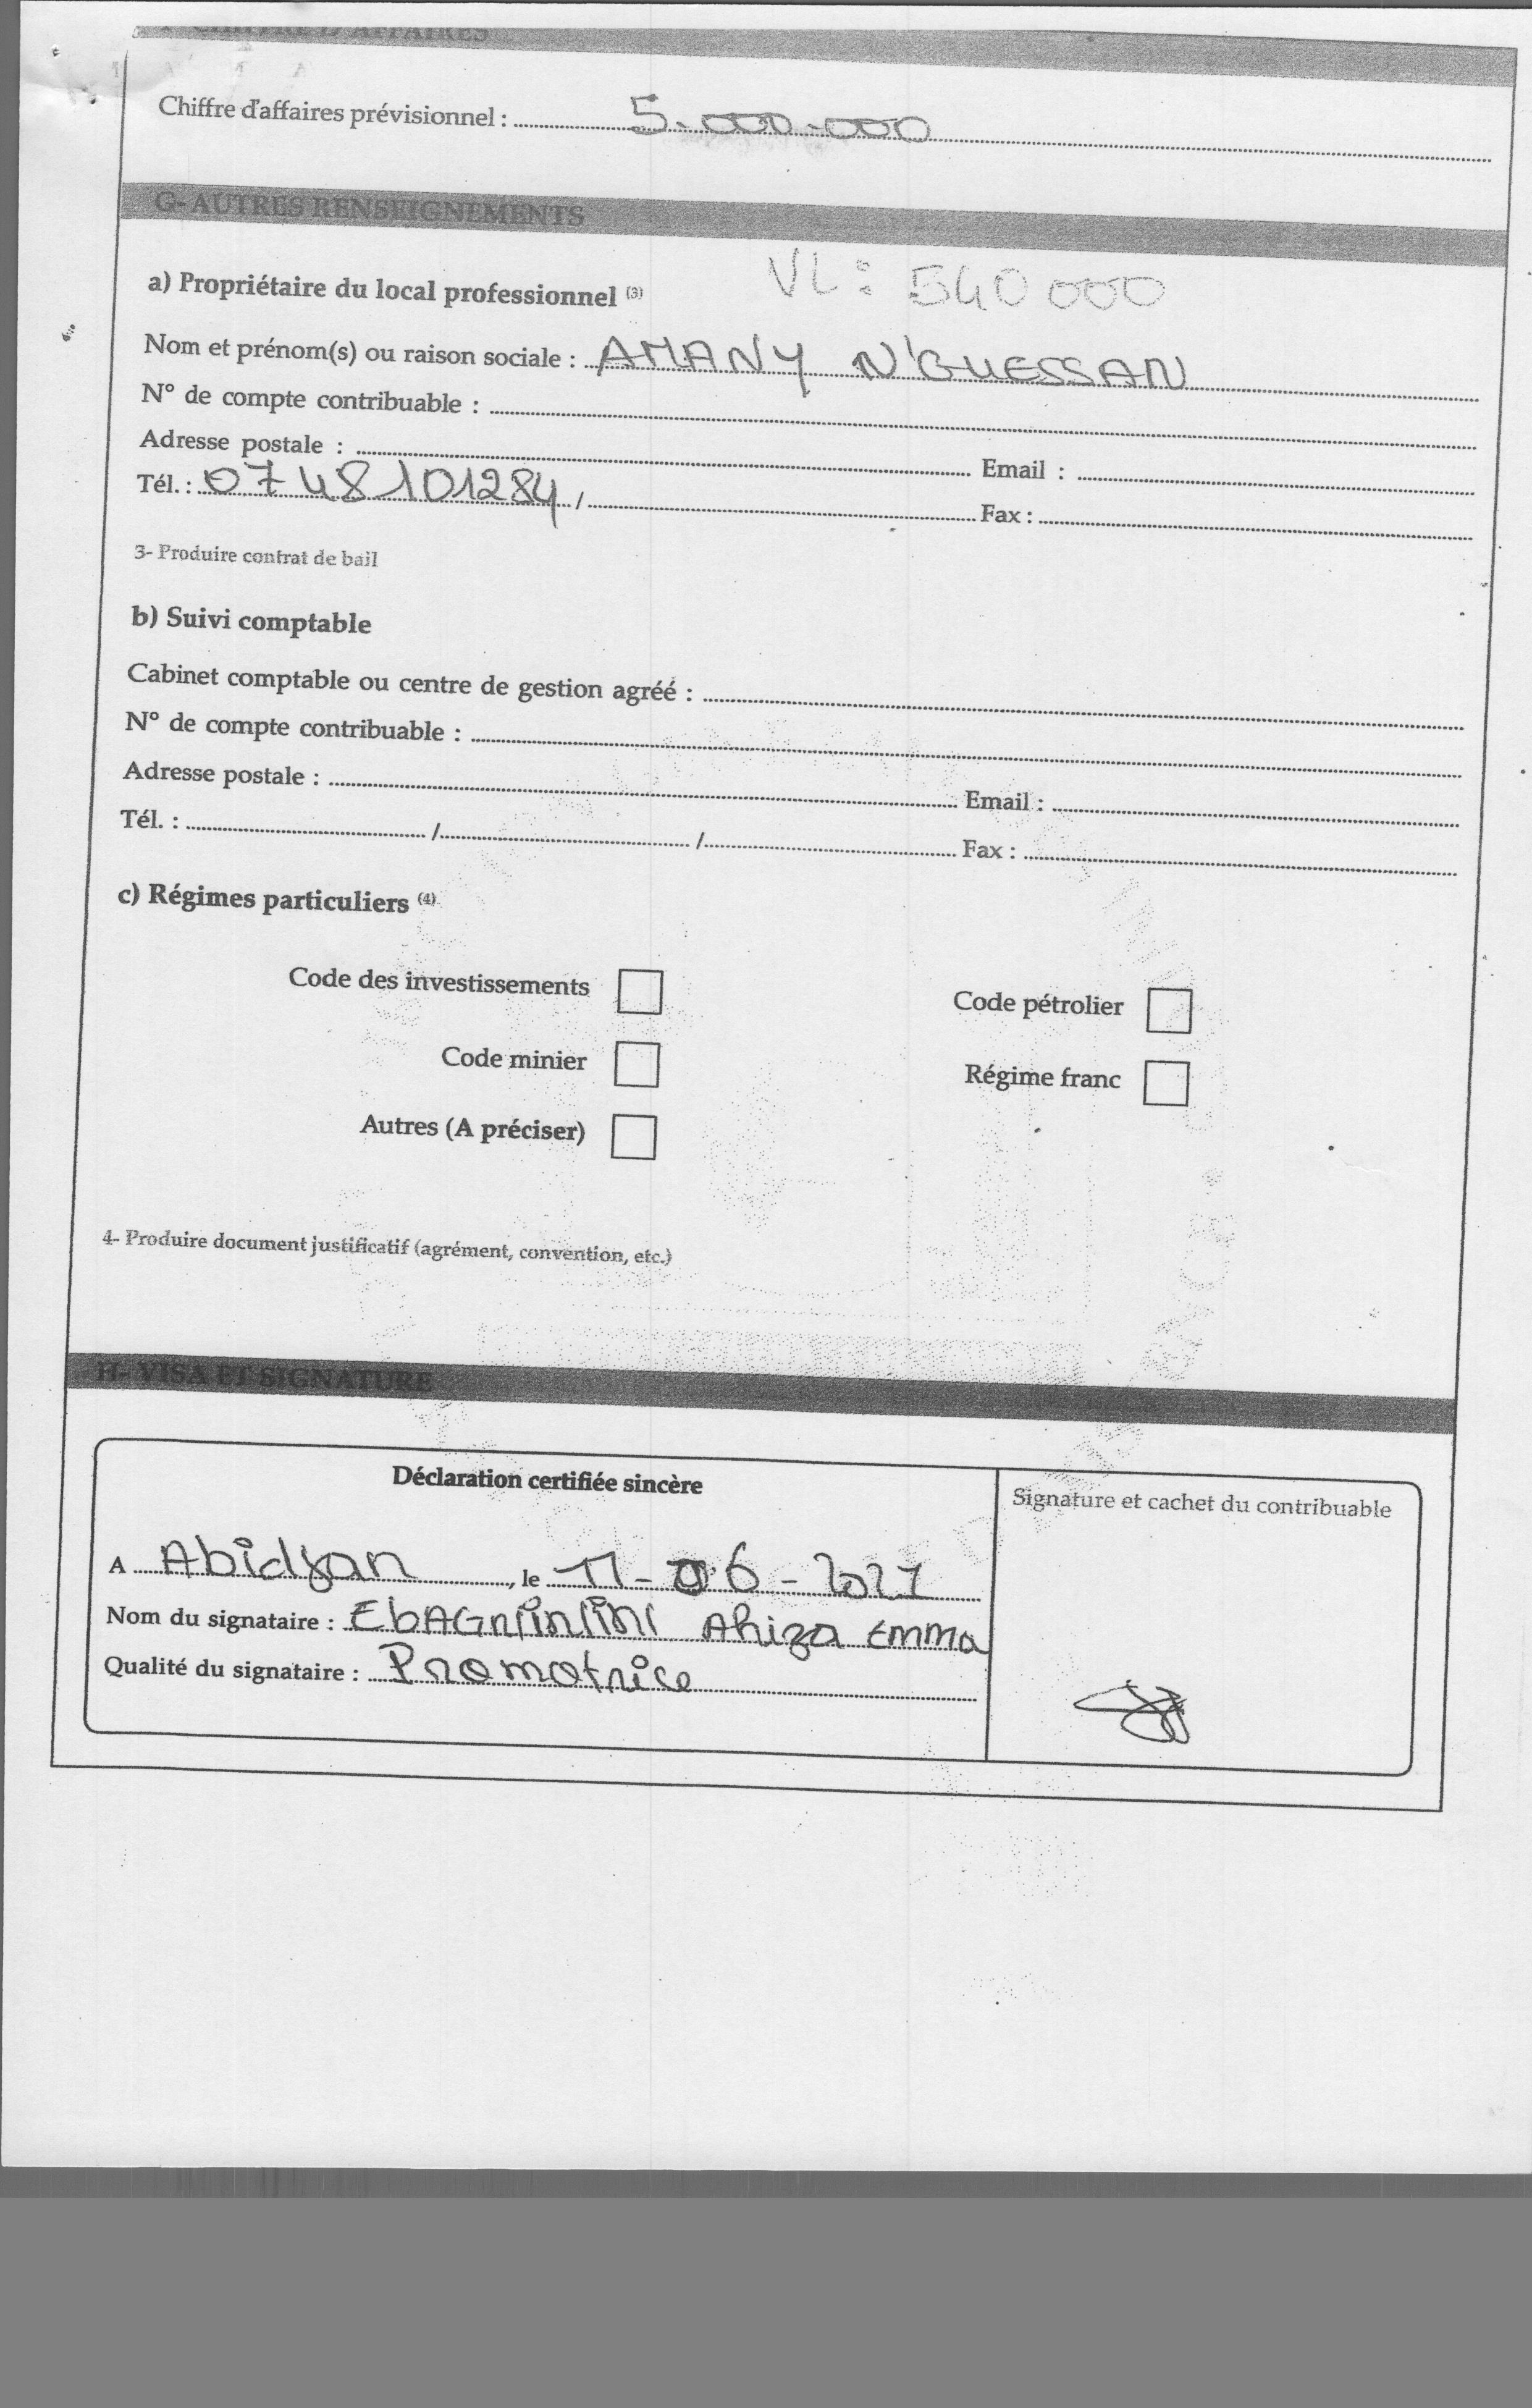 F- CHIFFRE D'AFFAIRES
Chiffre d'affaires prévisionnel : 5.000.000
G- AUTRES RENSEIGNEMENTS
a) Propriétaire du local professionnel (3) VL : 540 000
Nom et prénom(s) ou raison sociale : AMANY N'GUESSAN
N° de compte contribuable :
Adresse postale : Email :
Tél. : 0748101284 / Fax :
3- Produire contrat de bail
b) Suivi comptable
Cabinet comptable ou centre de gestion agréé :
N° de compte contribuable :
Adresse postale : Email :
Tél. : / / Fax :
c) Régimes particuliers (4)
Code des investissements Code pétrolier
Code minier Régime franc
Autres (A préciser)
4- Produire document justificatif (agrément, convention, etc.)
H- VISA ET SIGNATURE
Déclaration certifiée sincère
Signature et cachet du contribuable
A Abidjan, le 11-06-2021
Nom du signataire : Ahiza Emma
Qualité du signataire : Promotrice